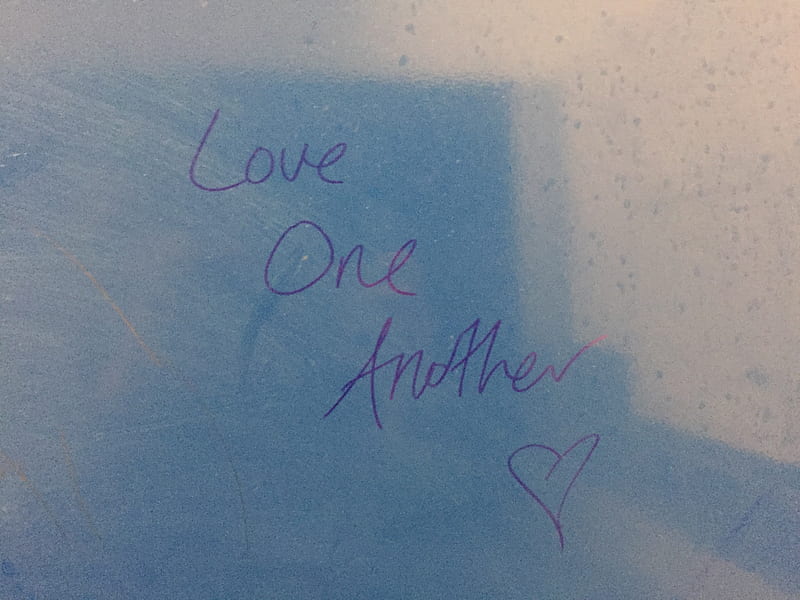 Love
One
Another